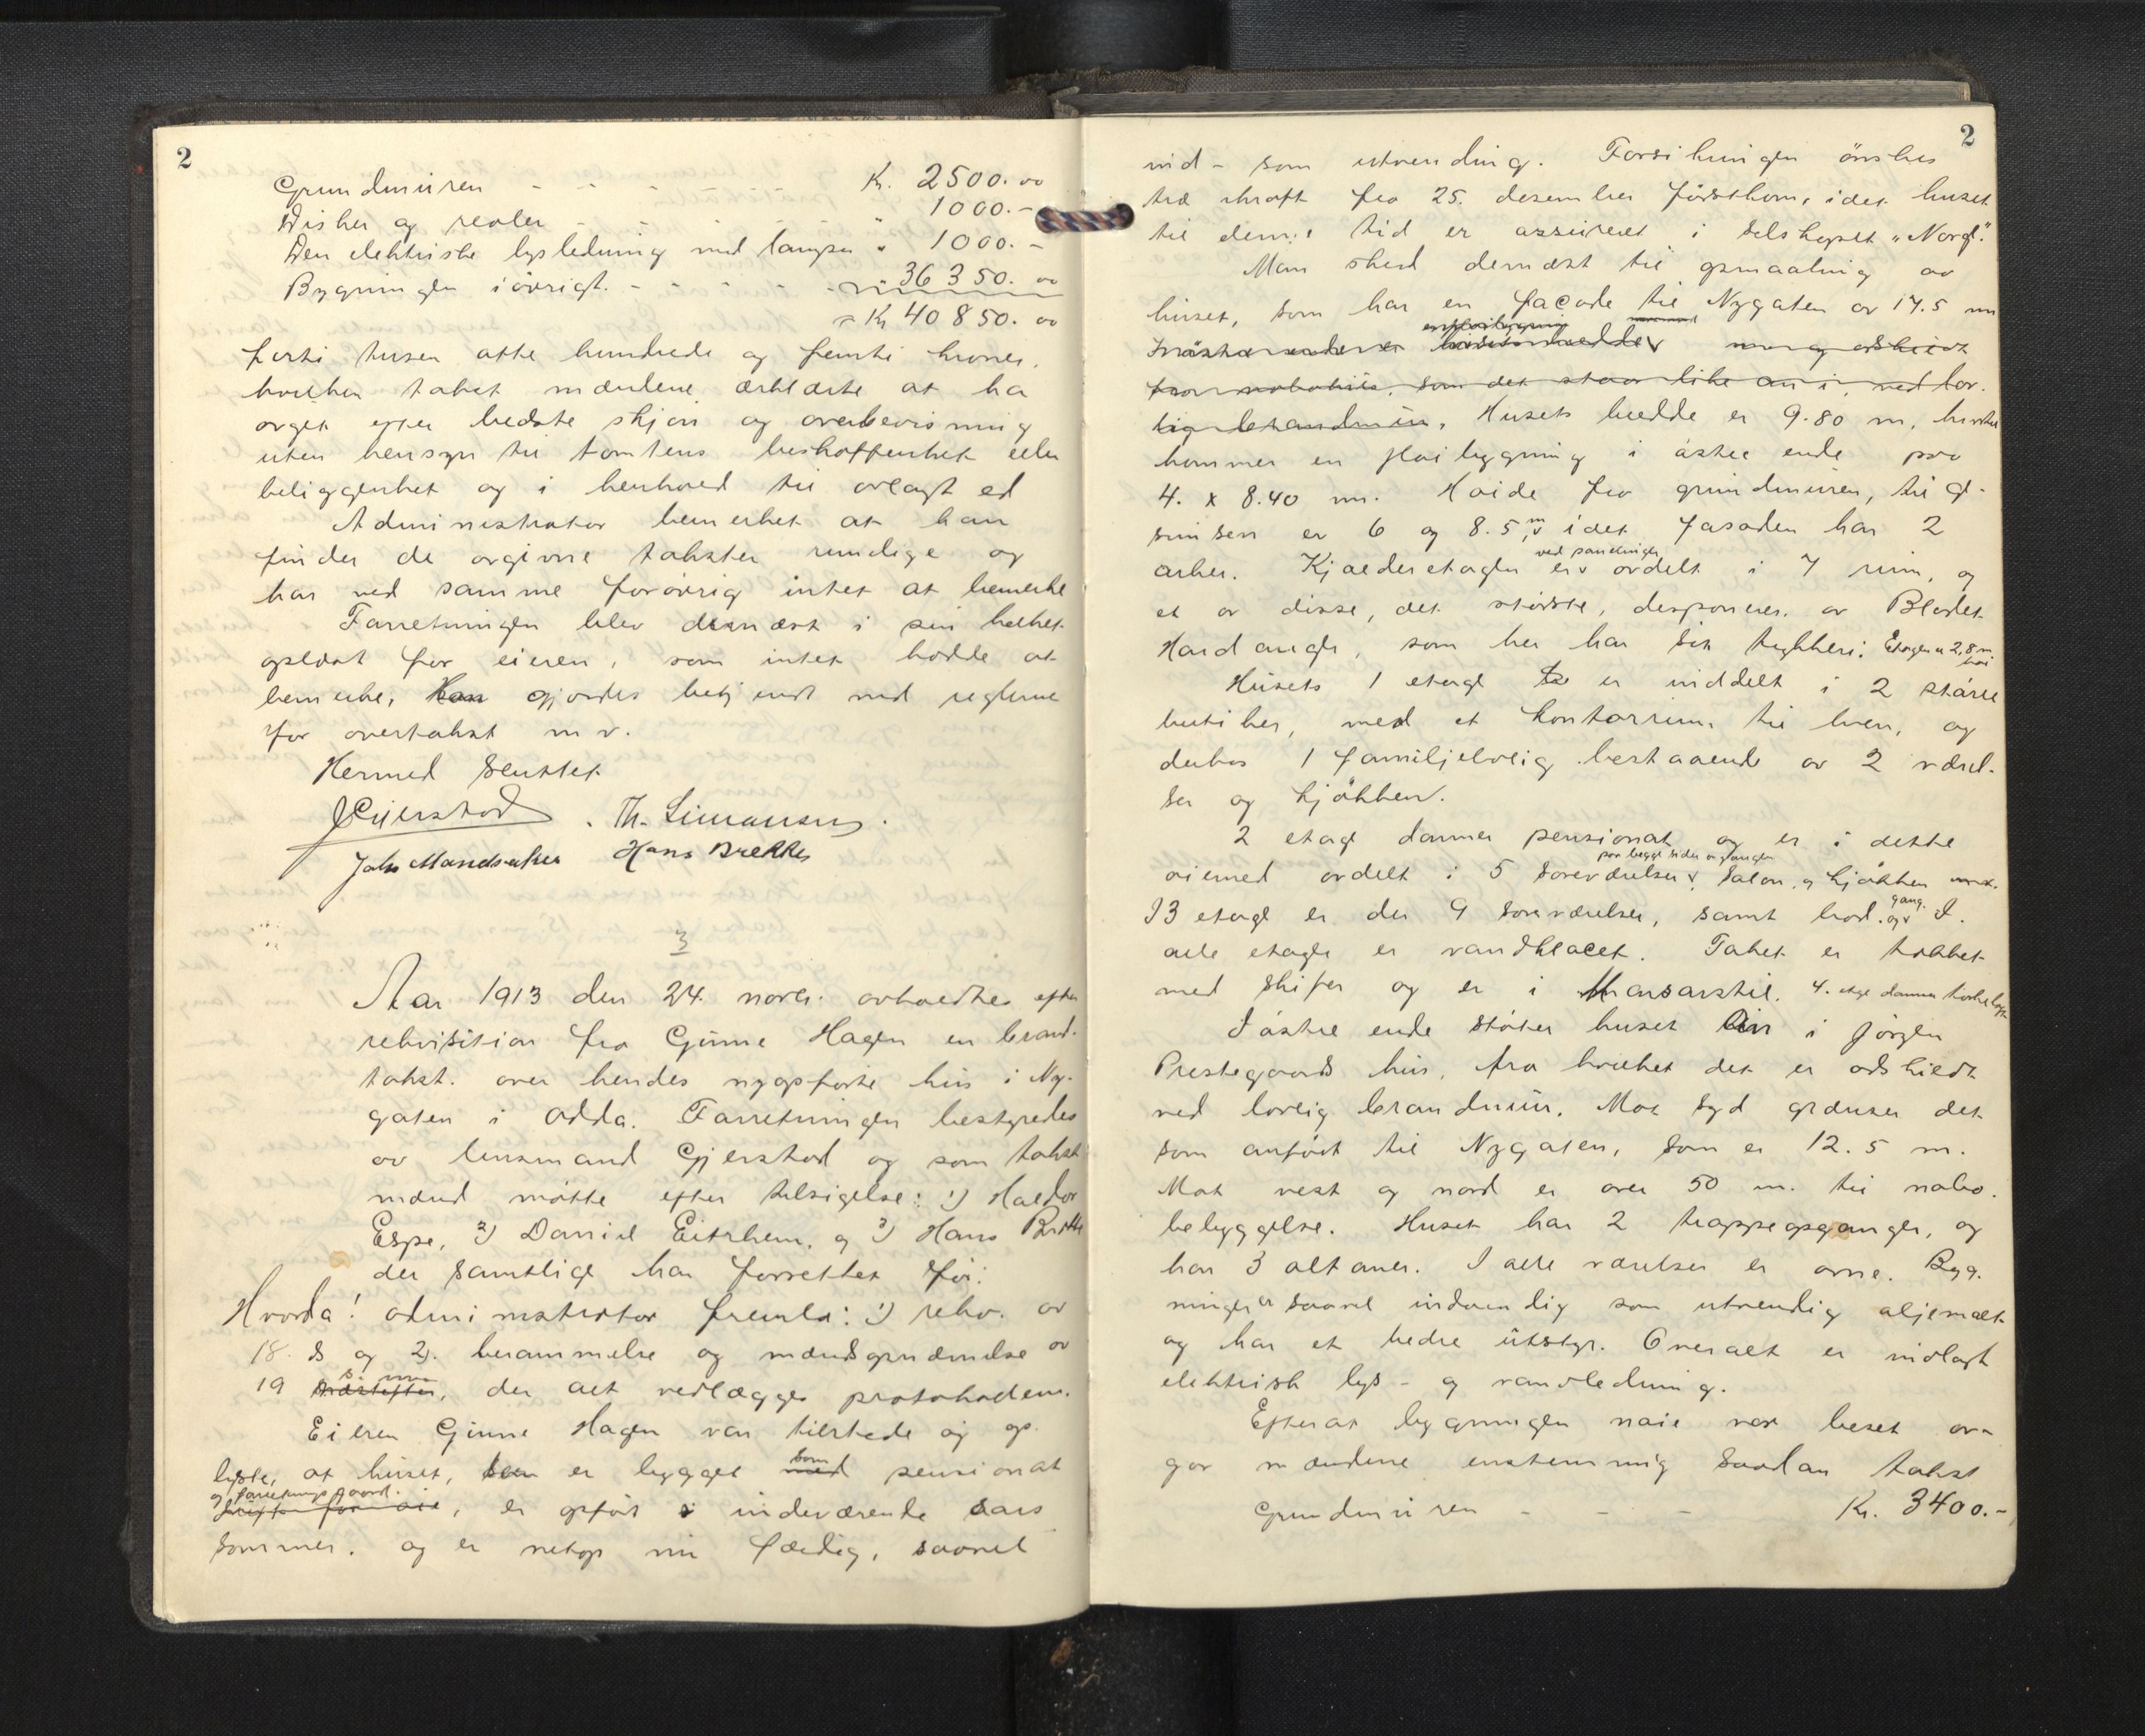 2
Grundmuren - - - - Kr. 2500.00
Disker og reoler - - - - - " 1000.-
Den elektriske lysledning med lamper " 1000.-
Bygningen iövrigt. - - - - - " 36350.00
= Kr 40850.00
förti tusen otte hundrede og femti kroner,
hvilken takst mændene erklærte at ha
avget efter bedste skjön og overbevisning
uten hensyn til tomtens beskaffenhet eller
beliggenhet og i henhold til avlagt ed
Administrator bemerket at han
finder de avgivne takster rimelige og
har ved samme forövrig intet at bemerke
Forretningen blev dernæst i sin helhet
oplæst for eieren, som intet hadde at
bemerke, Han gjordes bekjendt med reglerne
for overtakst m v.
Hermed sluttet
JGjerstad . Th. Simonsen.
Joh. Mandsaker Hans Brekke
3
Aar 1913 den 24. novbr. avholdtes efter
rekvisition fra Gunne Hagen en brand-
takst. over hendes nyopförte hus i Ny-
gaten i Odda. Forretningen bestyredes
av lensmand Gjerstad og som takst
mænd mötte efter tilsigelse: 1) Haldor
Espe, 2) Daniel Eitrheim, og 3) Hans Brekke
der samtlige har forrettet för.
Hvorda! administrator fremla: 1) rekv. av
18. ds og 2). berammelse og mændsopnævnelse av
s. m.
19 næstefter, der alt vedlægges protokollen.
Eieren Gunne Hagen var tilstede og op-
som
lyste, at huset, som er bygget med pensionat
og forretningsgaard.
drift for oie, er opfört i indeværende aars
sommer. og er netop nu færdig, saavel
2
ind- som utvending. Forsikringen önskes
træ i kraft fra 25. desember förstkom, idet huset
til denne tid er assureret i Selskapet "Norge."
Man skred dernæst til opmaaling av
huset, som har en facade til Nygaten av 17.5 m
en flöibygning
hus, som det staar like an i, ved lov-
lig brandmur, Husets bredde er 9.80 m, hertil
kommer en flöibygning i östre ende paa
4. x 8.40 m. Höide fra grundmuren, til ge-
m
simsen er 6 og 8.5, v idet fasaden har 2
ved panelinger
arker. Kjælderetagen er v avdelt i 7 rum, og
et av disse, det störste, desponeres av Bladet
Hardanger, som her har sit trykkeri. Etagen er 2,8 m höi
Husets 1 etage er inddelt i 2 störe
butiker, med et kontorrum til hver, og
derhos 1 familjebolig bestaaende av 2 værel-
ser og kjökken.
2 etage danner pensionat og er i dette
paa begge sider av gangen
öiemed avdelt i 5 soveværelser v, salon, og kjökken
gang.
I 3 etage er der 9 soveværelser, samt bod. og v I.
alle etager er vandklacet. Taket er tækket
med skifer og er i Mansarstil. 4. etge danner törkeloft
I östre ende stöter huset ind i Jörgen
Prestegaards hus, fra hvilket det er adskildt
ved lovlig brandmur. Mot syd grænser det
som anfört til Nygaten, som er 12.5 m.
Mot vest og nord er over 50 m. til nabo-
bebyggelse. Huset har 2 trappeopganger, og
har 3 altaner. I alle værelser er ovne. Byg-
ningen er saavel indvendig som utvendig oljemalt
og har et bedre utstyr. Overalt er indlagt
elektrisk lys- og vandledning.
Efterat bygningen nöie var beset av-
gav mændene enstemmig saadan takst
Grundmuren - - - Kr. 3400.-